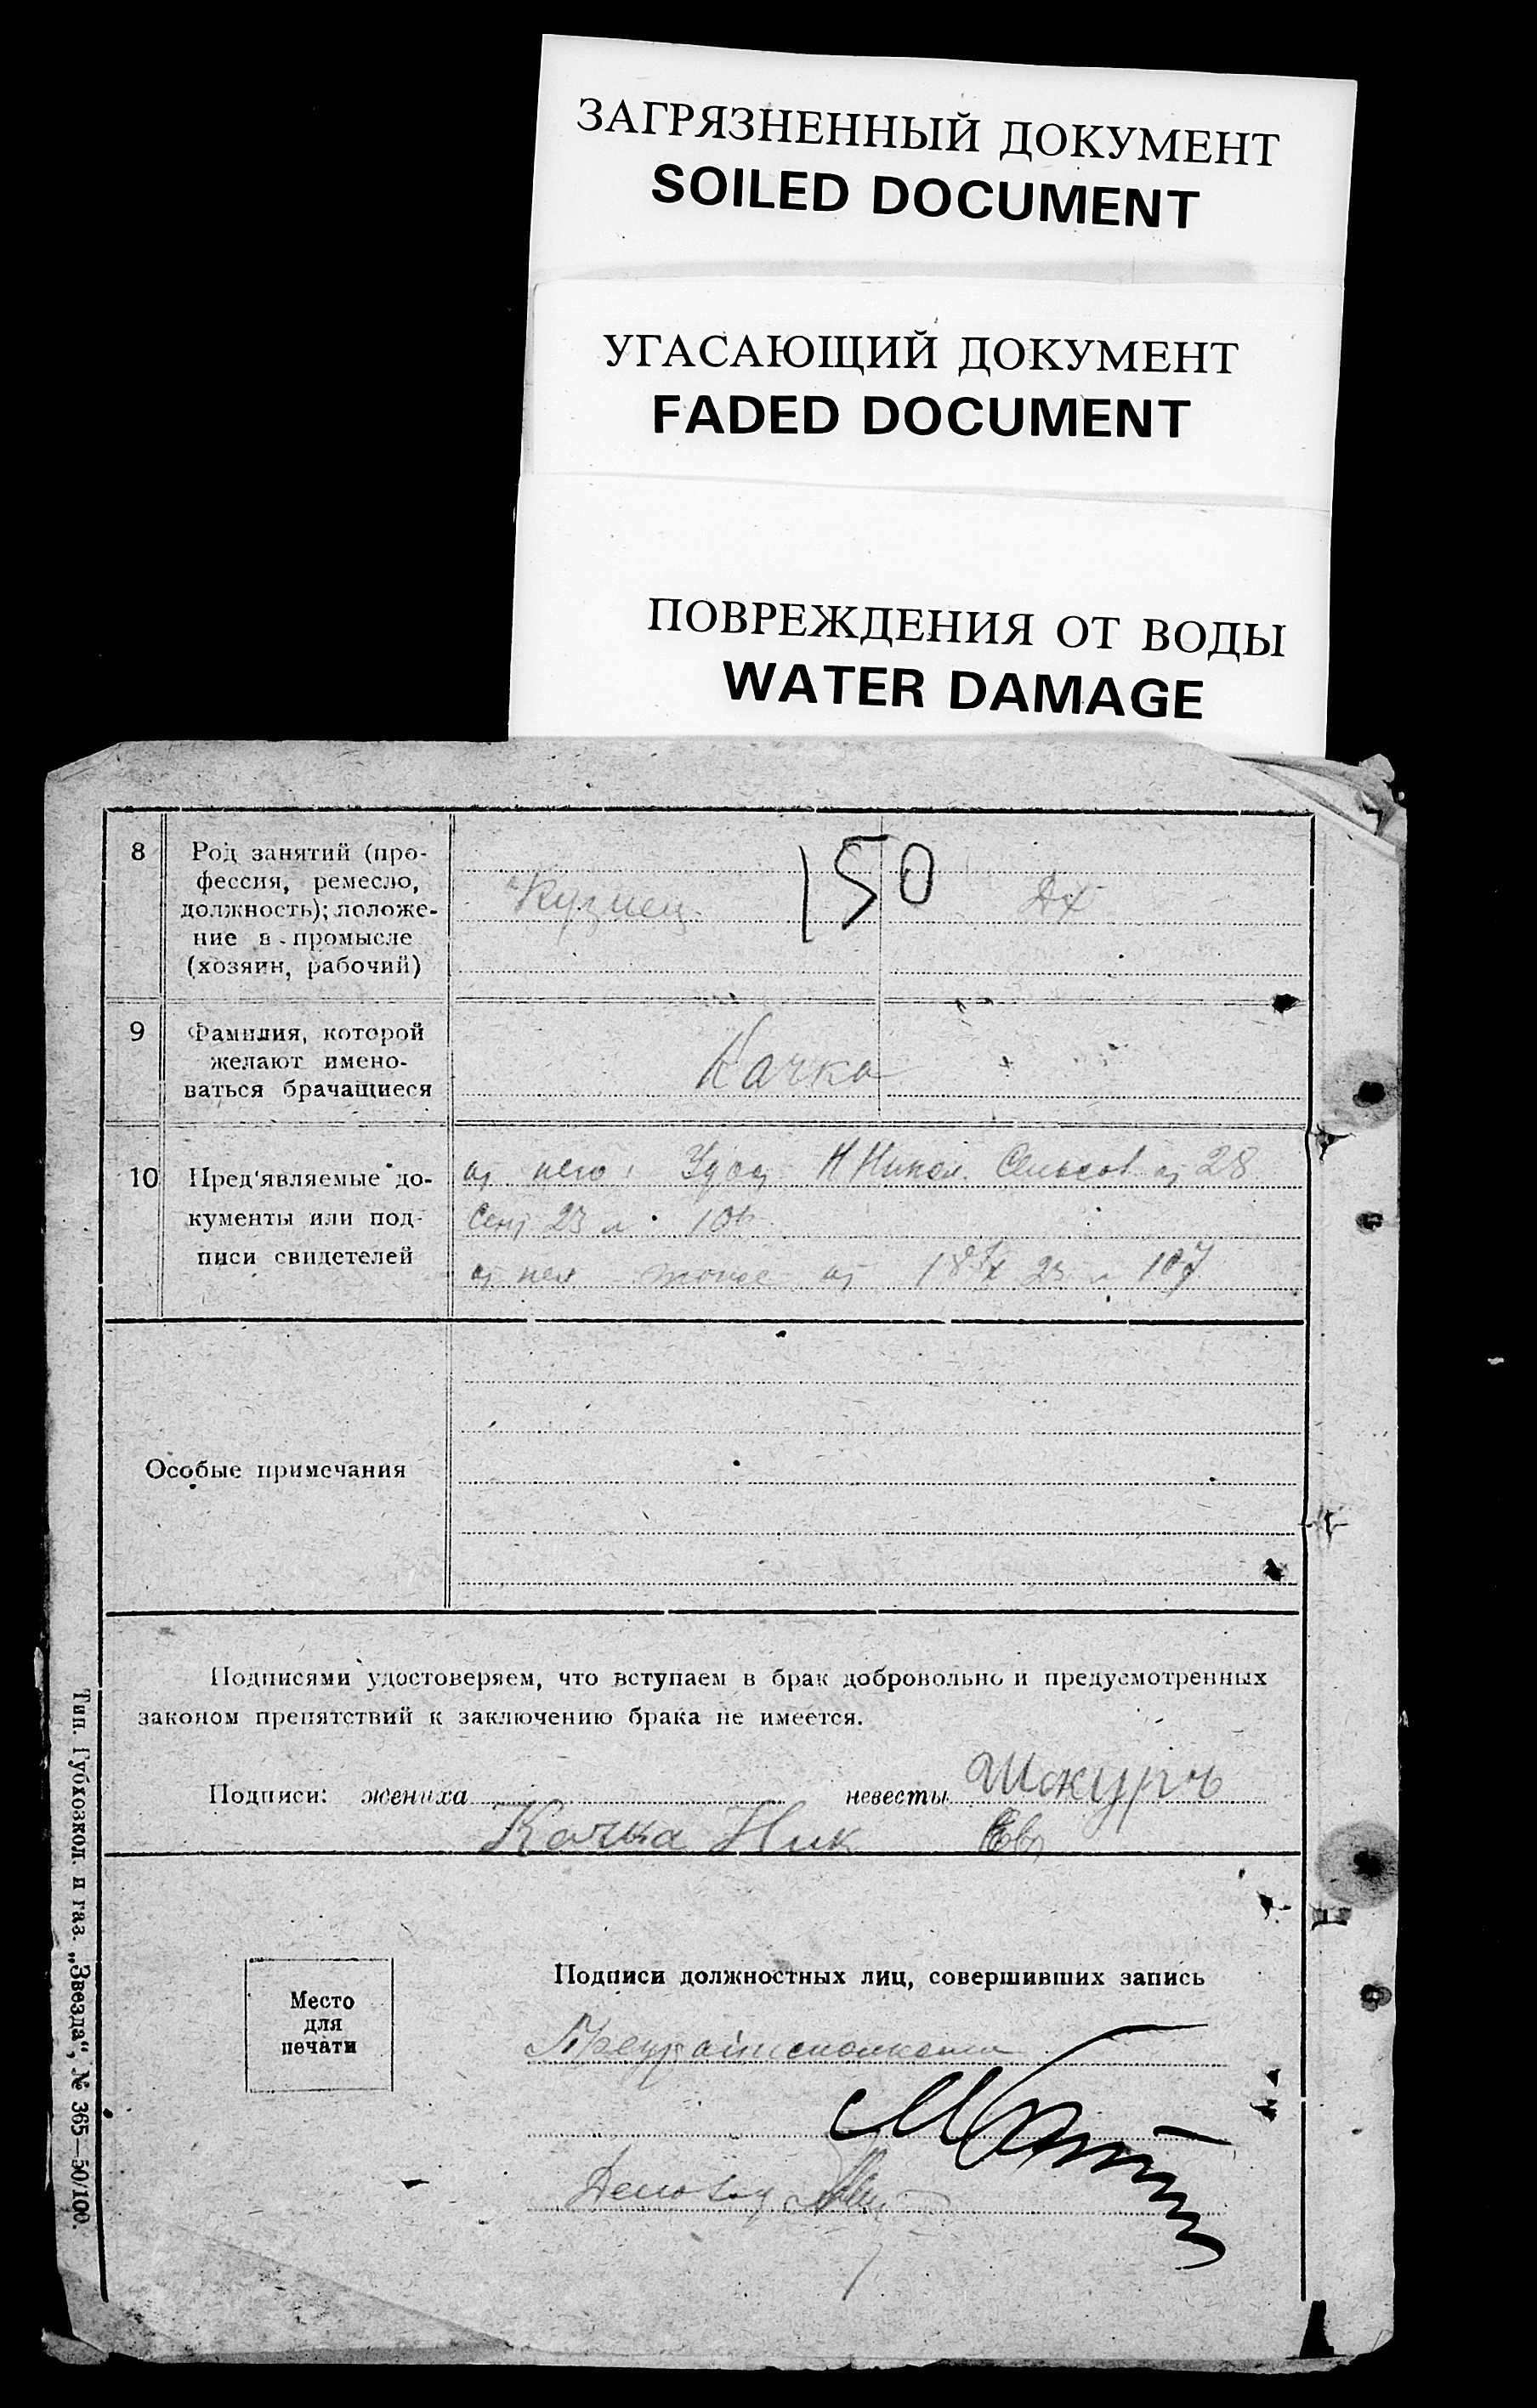 ЗАГРЯЗНЕННЫЙ ДОКУМЕНТ
SOILED DOCUMENT
УГАСАЮЩИЙ ДОКУМЕНТ
FADED DOCUMENT
ПОВРЕЖДЕНИЯ ОТ ВОДЫ
WATER DAMAGE
150
8 Род занятий (про-
фессия, ремесло,
должность); положе-
ние в промысле
(хозяин, рабочий)
Кузнец Дх
9 Фамилия, которой
желают имено-
ваться брачащиеся
Качка
10 Пред'являемые до-
кументы или под-
писи свидетелей
от него: Удост Н Никол. Сельсов от 28
Сент 23 № 106
от нея тоже от 23 № 107
Особые примечания
Подписями удостоверяем, что вступаем в брак добровольно и предусмотренных
законом препятствий к заключению брака не имеется.
Подписи: жениха невесты
Качка Ник
Место
для
печати
Подписи должностных лиц, совершивших запись
Тип. Губхозкол. и газ. „Звезда“, № 365—50/100.